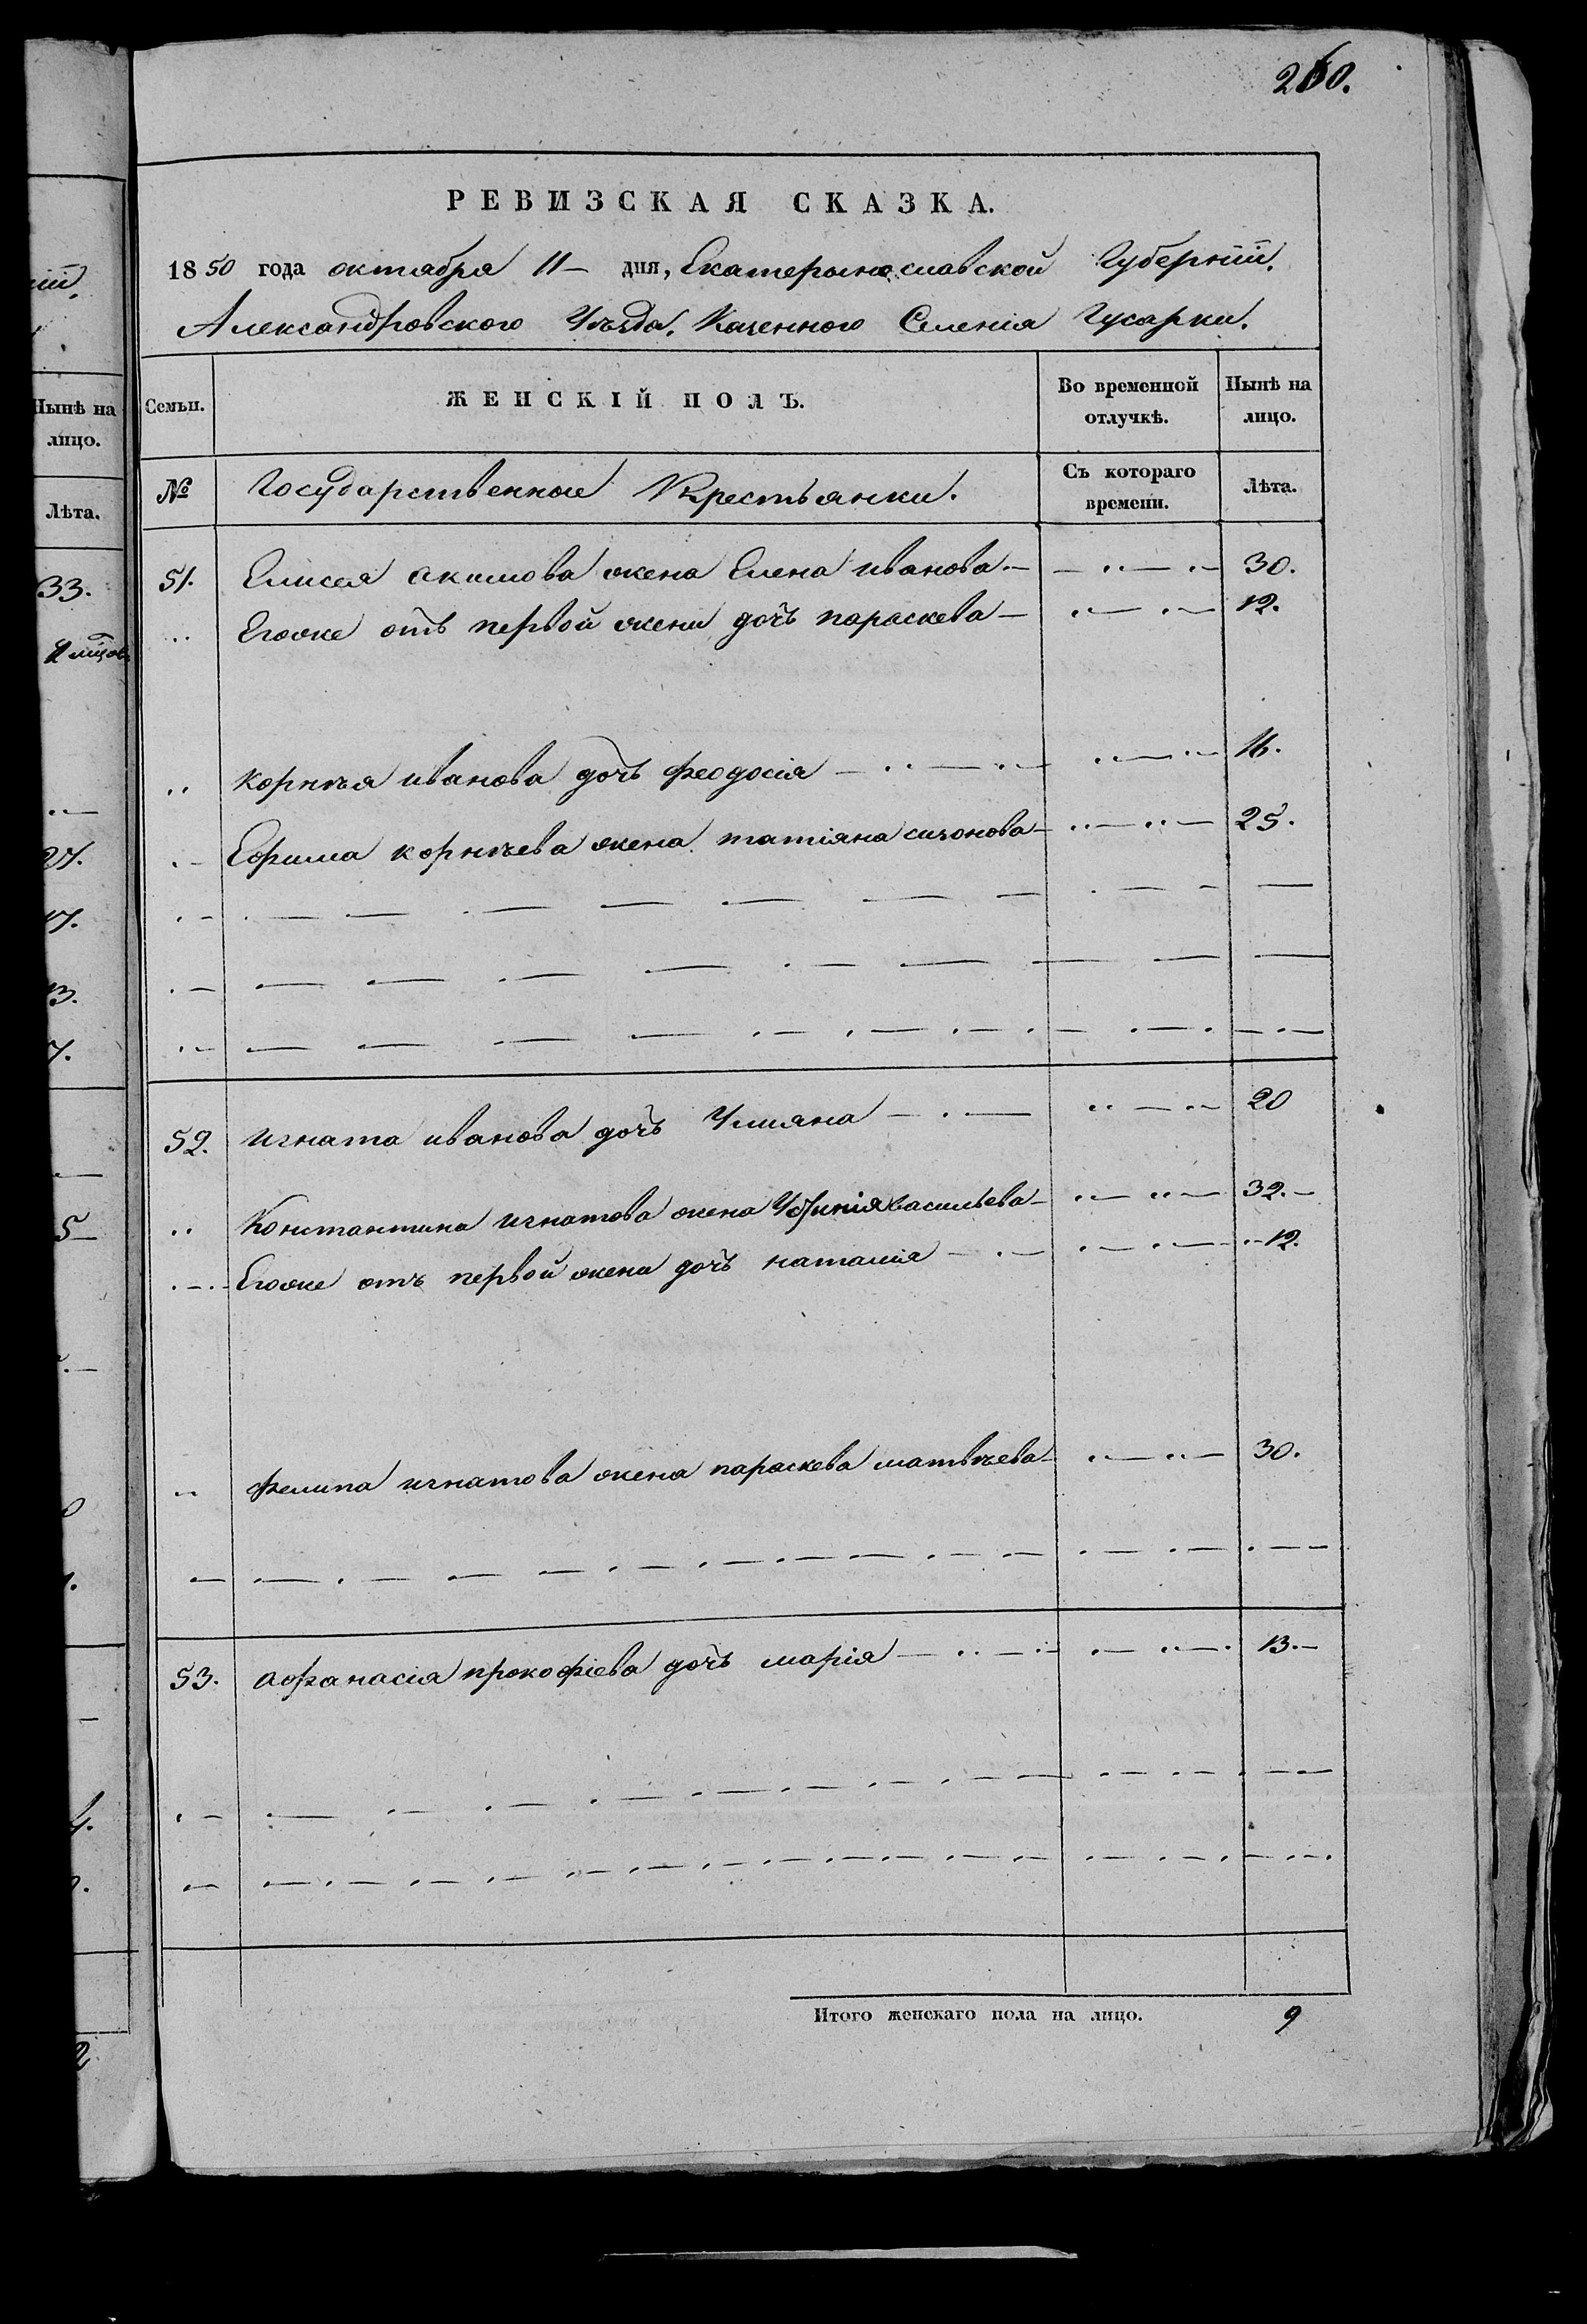 260.
РЕВИЗСКАЯ СКАЗКА.
1850 года октября 11 – дня, Екатеринославской Губерніи.
Александровского Уѣзда, Казенного Селенія Гусарки.
Семьи. ЖЕНСКІЙ ПОЛЪ. Во временной отлучкѣ. Нынѣ на лицо.
№ Государственные Крестьянки. Съ котораго времени. Лѣта.
51. Елисея акимова жена Елена иванова. 30.
Егоже отъ первой жены дочь параскева 12.
корнѣя иванова дочь феодосія 16.
Ефима корнѣева жена татіяна 25.
52. игната иванова дочь Ульяна 20
Константина игнатова жена васильева 32.
Егоже отъ первой жены дочь наталія 12.
филипа игнатова жена параскева матвѣева 30.
53. афанасія прокофіева дочь марія 13.
Итого женскаго пола на лицо. 9
Нынѣ на лицо.
Лѣта.
33.
27.
17.
13.
7.